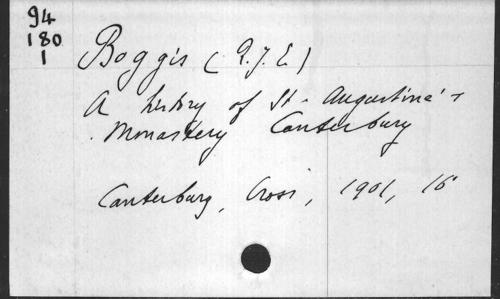 94
180
1
Boggis (R.J.E)
A history of St. Augustine's
Monastery Canterbury
Canterbury, Cross, 1901, 16°